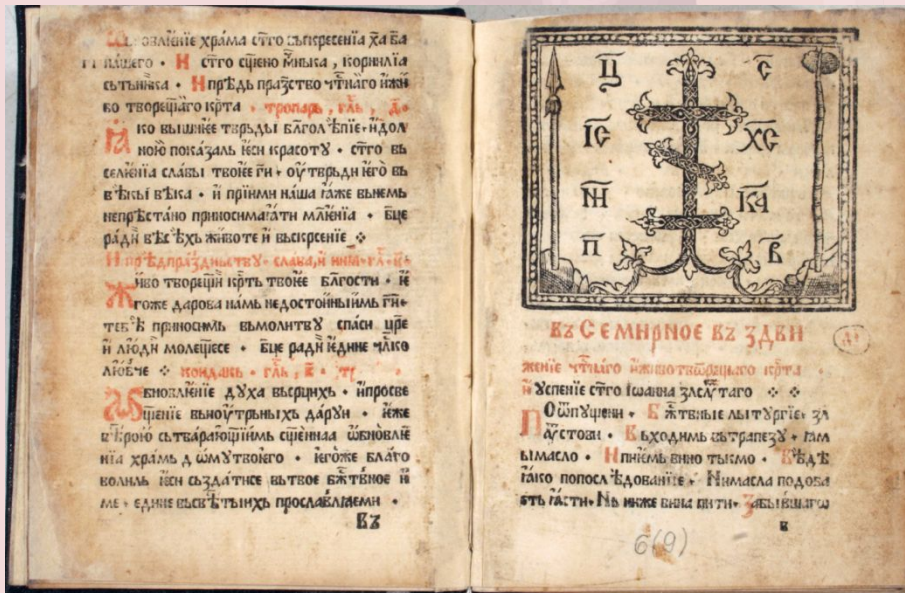 ѡбновлїенїе храма ст҃го въскресенїа ха҃ ба҃
нашего • И ст҃го сщ҃ено мн҃ика , корнилїа
сътьника • И прѣдь праⷥ҇ство чт҃наго и҆ жи
во творещаго кр҃та • тропарь , гл҃ь , д҃ •
Ꙗко вышнїее тврьды бл҃голѣпїе • и҆ дол
ною показаль ѥси красотѹ • ст҃го вь
селїенїа славы твоѥе гⷭ҇и • ѹ҆тврьди ѥго вь
вѣкы вѣка • и҆ прїими наша ꙗже вьнемь
непрѣстано приносимаꙗ ти мл҃енїа • бц҃е
ради вьсѣхь животе и҆ вьскрсенїе ⁘
И прѣдпразⷣньствѹ • слава , и҆ нин҃ꙗ • гл҃ • в҃ •
Живо творещїи кр҃ть твоѥе бл҃гости • ѥ
гоже дарова намь недостойныимь гⷭ҇и •
тебѣ приносимь вьмолитвѹ спаси цр҃е
и҆ люди молещесе • бц҃е ради ѥдине чл҃ко
любче ⁘ кондакь • гл҃ь , д҃ •
Ѡбновлїенїе дѹха вьсрцихь • и҆ просве
щенїе вьнѹтрьныхь дарѹи • ѥже
вѣрою сьтварающїимь сщ҃еннаа ѡбновлїе
нїа храмь дѡмѹ твоѥго • ѥгоже благо
волиль ѥси сьздатисе вьтвое бж҃твное и
ме • едине вьсветыихь прославлꙗеми •
Въ
Ц҃ С҃
ІС҃ ХС҃
НИ҃ КА҃
П҃ В҃
въ Семирное въ здви
жение чт҃наго и҆ животвѡрѧщаго кр҃та •
и҆ ѹспенїе ст҃го Іѡанна злⷮ҇аѹстаго ⁘ ⁘
По ѡпѹщени • Бж҃твные лытѹргїе • зл
аѹстови • Въходимь вътрапезѹ • ꙗм
ы масло • И пиѥмь вино тькмо • Вѣдѣ
ꙗко попослѣдованїе • Ни масла подоба
еть ꙗсти • Нь ниже вина пити • Забывшаго
в
6(9)